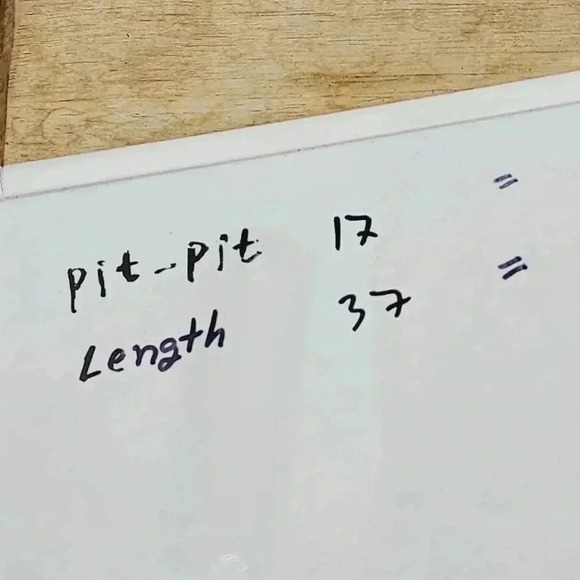 pit-pit 17 "
Length 37 "